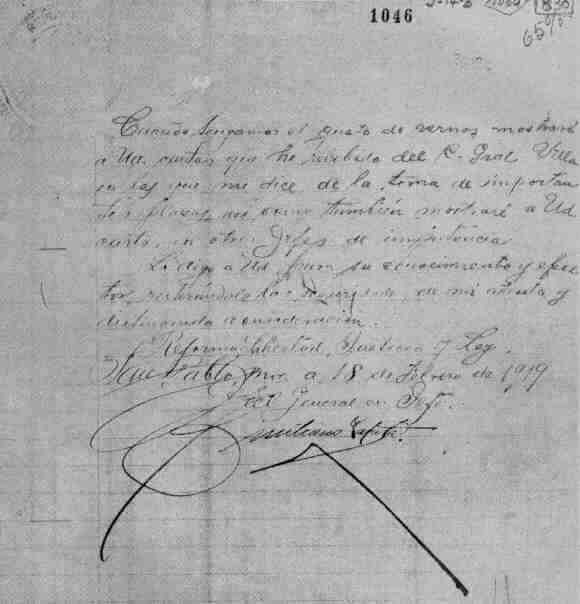 1046
65
Cuando tengamos el gusto de vernos mostraré
a Ud. cartas que he recibido del C. Gral. Villa
en las que me dice de la toma de importan
tes plazas, así como también mostraré a Ud
carta, de otros Jefes de importancia.
Lo digo a Ud. para su conocimiento y efec
tos, reiterándole las de mi atenta y
distinguida consideración.
Reforma, Libertad, Justicia y Ley.
Pablo, Mor. a 18 de Febrero de 1919
El General en Jefe.
Emiliano Zapata.